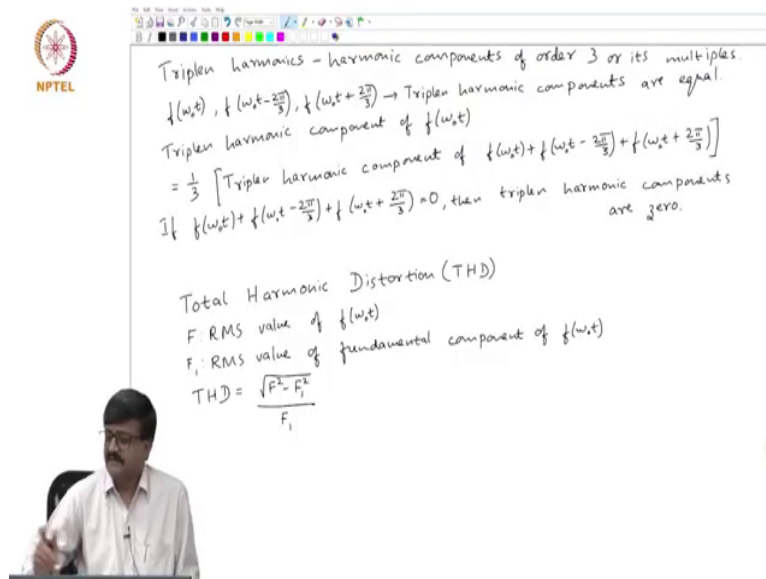 NPTEL
Triplen harmonics - harmonic components of order 3 or its multiples.
f(ω₀t), f(ω₀t-2π/3), f(ω₀t+2π/3) → Triplen harmonic components are equal.
Triplen harmonic component of f(ω₀t)
= 1/3 [Triplen harmonic component of f(ω₀t)+f(ω₀t-2π/3)+f(ω₀t+2π/3)]
If f(ω₀t)+f(ω₀t-2π/3)+f(ω₀t+2π/3)=0, then triplen harmonic components
are zero.
Total Harmonic Distortion (THD)
F: RMS value of f(ω₀t)
F₁: RMS value of fundamental component of f(ω₀t)
THD = √(F²-F₁²)/F₁